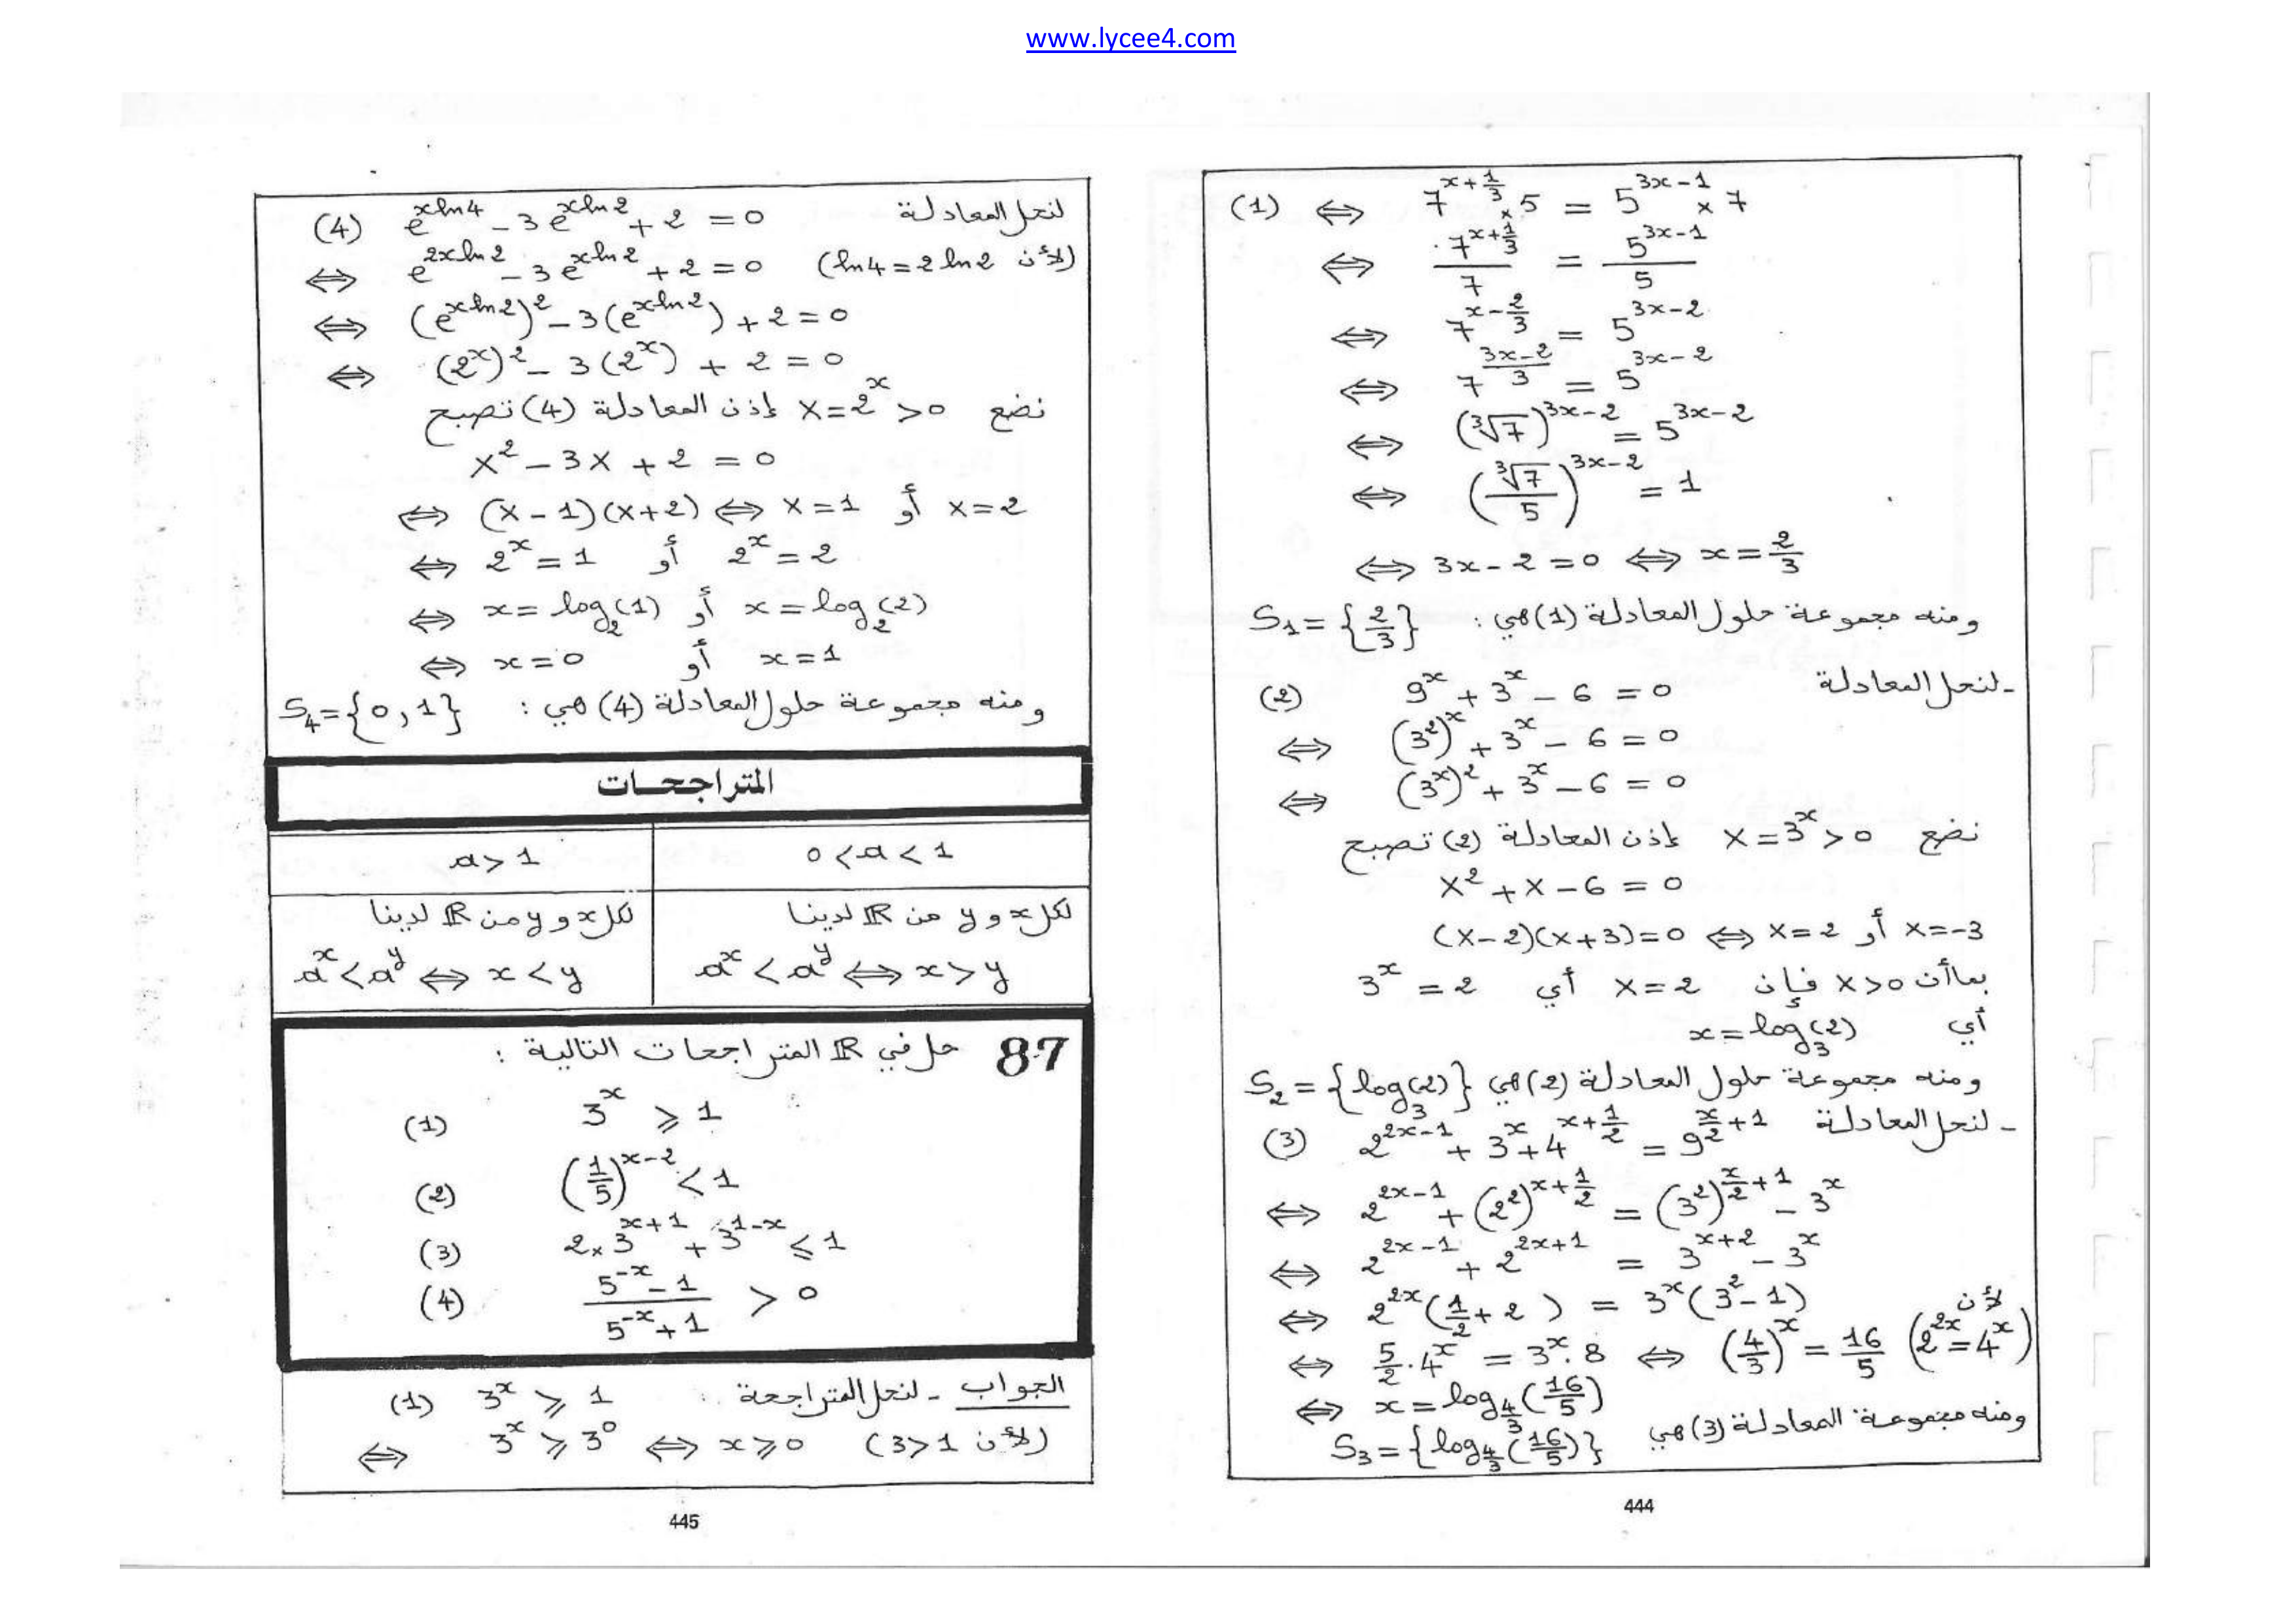 www.lycee4.com
(1) ⇔ 7^{x+1/3} × 5 = 5^{3x-1} × 7
⇔ 7^{x+1/3} / 7 = 5^{3x-1} / 5
⇔ 7^{x-2/3} = 5^{3x-2}
⇔ 7^{(3x-2)/3} = 5^{3x-2}
⇔ (∛7)^{3x-2} = 5^{3x-2}
⇔ (∛7/5)^{3x-2} = 1
⇔ 3x-2=0 ⇔ x=2/3
ومنه مجموعة حلول المعادلة (1) هي: S₁={2/3}
- لنحل المعادلة 9^x + 3^x - 6 = 0 (2)
⇔ (3²)^x + 3^x - 6 = 0
⇔ (3^x)² + 3^x - 6 = 0
نضع X=3^x>0 إذن المعادلة (2) تصبح
X² + X - 6 = 0
(X-2)(X+3)=0 ⇔ X=2 أو X=-3
بماأن X>0 فإن X=2 أي 3^x = 2
أي x=log₃(2)
ومنه مجموعة حلول المعادلة (2) هي S₂={log₃(2)}
- لنحل المعادلة 2^{2x-1} + 3^x + 4^{x+1/2} = 9^{x/2+1} (3)
⇔ 2^{2x-1} + (2²)^{x+1/2} = (3²)^{x/2+1} - 3^x
⇔ 2^{2x-1} + 2^{2x+1} = 3^{x+2} - 3^x
⇔ 2^{2x}(1/2+2) = 3^x(3²-1)
⇔ 5/2.4^x = 3^x.8 ⇔ (4/3)^x = 16/5 (لأن 2^{2x}=4^x)
⇔ x=log_{4/3}(16/5)
ومنه مجموعة المعادلة (3) هي S₃={log_{4/3}(16/5)}
444
لنحل المعادلة e^{xln4} - 3e^{xln2} + 2 = 0 (4)
⇔ e^{2xln2} - 3e^{xln2} + 2 = 0 (لأن ln4=2ln2)
⇔ (e^{xln2})² - 3(e^{xln2}) + 2 = 0
⇔ (2^x)² - 3(2^x) + 2 = 0
نضع X=2^x>0 إذن المعادلة (4) تصبح
X² - 3X + 2 = 0
⇔ (X-1)(X+2) ⇔ X=1 أو X=2
⇔ 2^x=1 أو 2^x=2
⇔ x=log₂(1) أو x=log₂(2)
⇔ x=0 أو x=1
ومنه مجموعة حلول المعادلة (4) هي: S₄={0,1}
المتراجحات
0<a<1 a>1
لكل x و y من ℝ لدينا لكل x و y من ℝ لدينا
a^x<a^y ⇔ x>y a^x<a^y ⇔ x<y
87 حل في ℝ المتراجحات التالية:
(1) 3^x ⩾ 1
(2) (1/5)^{x-2} < 1
(3) 2×3^{x+1} + 3^{1-x} ⩽ 1
(4) (5^{-x} - 1)/(5^{-x} + 1) > 0
الجواب - لنحل المتراجحة: 3^x ⩾ 1 (1)
⇔ 3^x ⩾ 3^0 ⇔ x⩾0 (لأن 3>1)
445